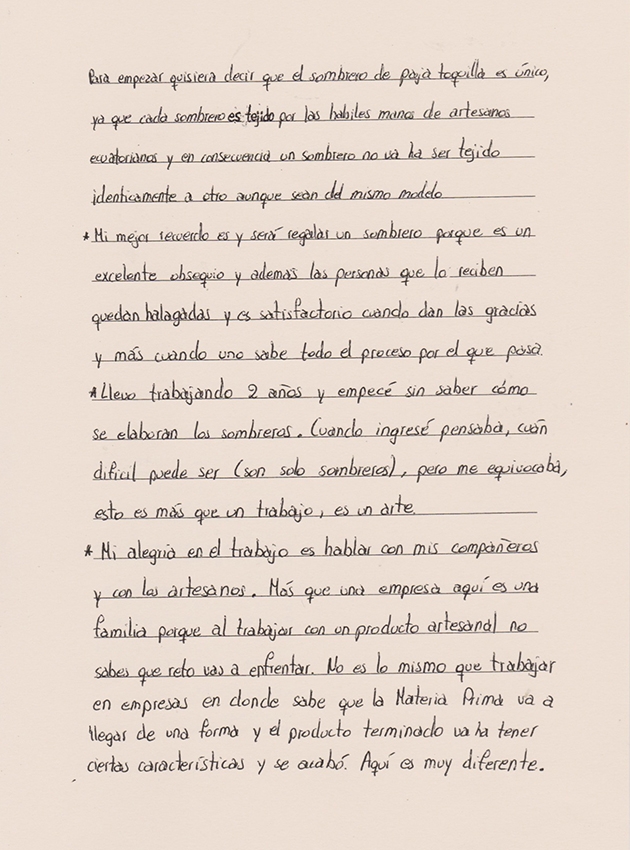 Para empezar quisiera decir que el sombrero de paja toquilla es único,
ya que cada sombrero es tejido por las habiles manos de artesanos
ecuatorianos y en consecuencia un sombrero no va ha ser tejido
identicamente a otro aunque sean del mismo modelo
* Mi mejor recuerdo es y será regalar un sombrero porque es un
excelente obsequio y ademas las personas que lo reciben
quedan halagadas y es satisfactorio cuando dan las gracias
y más cuando uno sabe todo el proceso por el que pasa.
* Llevo trabajando 2 años y empecé sin saber cómo
se elaboran los sombreros. Cuando ingresé pensaba, cuán
dificil puede ser (son solo sombreros), pero me equivocaba,
esto es más que un trabajo, es un arte.
* Mi alegria en el trabajo es hablar con mis compañeros
y con los artesanos. Más que una empresa aquí es una
familia porque al trabajar con un producto artesanal no
sabes que reto vas a enfrentar. No es lo mismo que trabajar
en empresas en donde sabe que la Materia Prima va a
llegar de una forma y el producto terminado va ha tener
ciertas características y se acabó. Aquí es muy diferente.